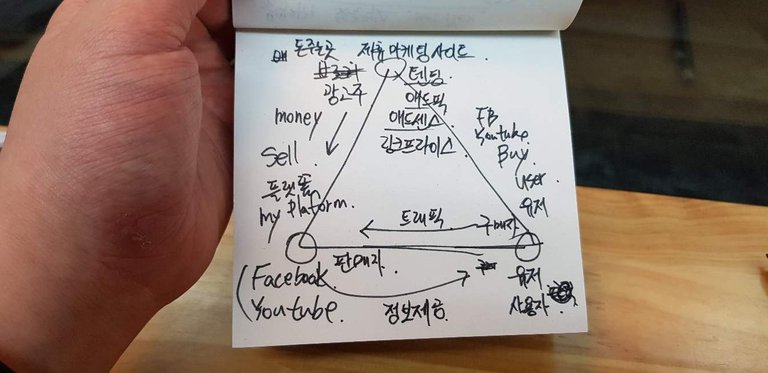 돈주는곳 제휴마케팅사이트.
광고주
텐딩.
애드픽
애드센스
링크프라이스
money
Sell.
플랫폼
my platform.
FB
Youtube
Buy.
user
유저
트래픽
구매자
판매자.
(Facebook.
Youtube.
정보제공.
유저
사용자